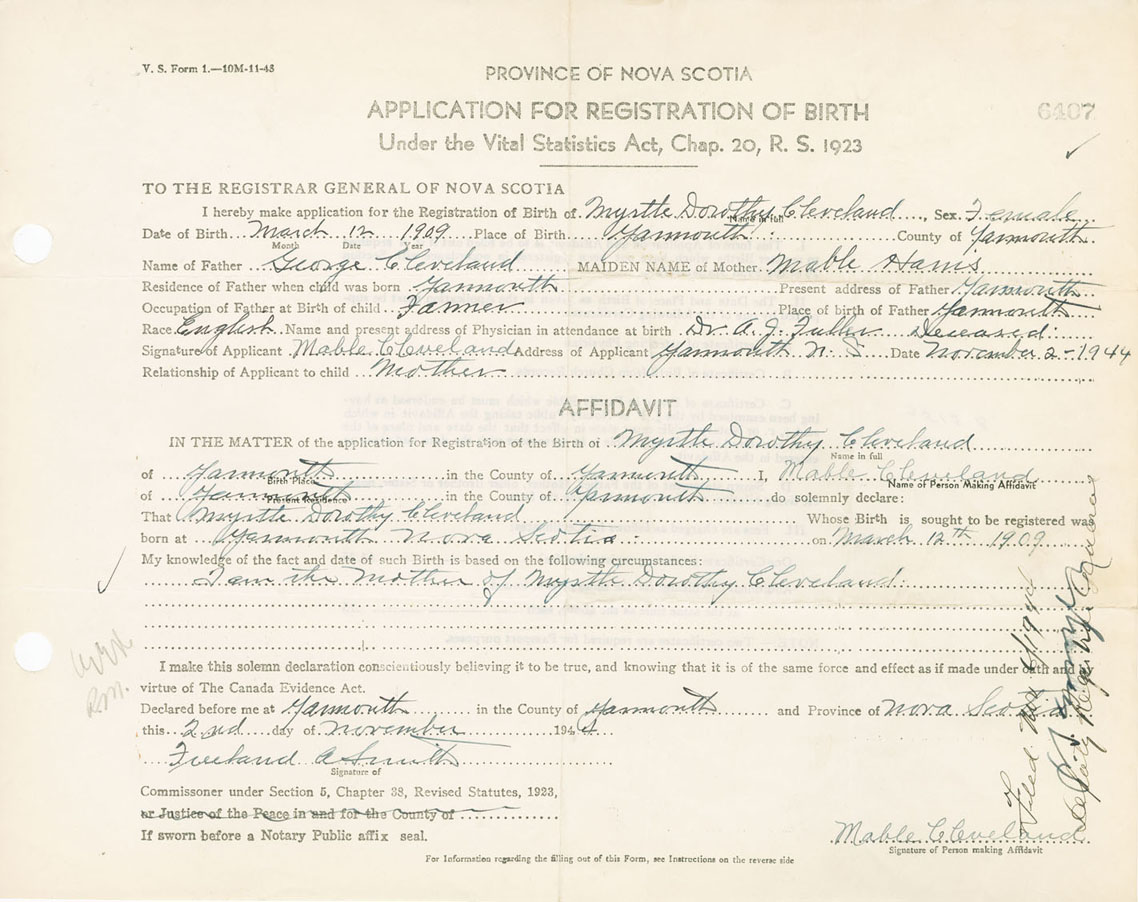 V. S. Form 1.—10M-11-43
PROVINCE OF NOVA SCOTIA
APPLICATION FOR REGISTRATION OF BIRTH
6407
Under the Vital Statistics Act, Chap. 20, R. S. 1923
TO THE REGISTRAR GENERAL OF NOVA SCOTIA
I hereby make application for the Registration of Birth of Myrtle Dorothy Cleveland, Sex Female
Name in full
Date of Birth March 12 1909 Place of Birth Yarmouth County of Yarmouth
Month Date Year
Name of Father George Cleveland MAIDEN NAME of Mother Mable Harris
Residence of Father when child was born Yarmouth Present address of Father Yarmouth
Occupation of Father at Birth of child Farmer Place of birth of Father Yarmouth
Race English Name and present address of Physician in attendance at birth Dr. A. J. Fuller Deceased
Signature of Applicant Mable Cleveland Address of Applicant Yarmouth N. S. Date November 2 - 1944
Relationship of Applicant to child Mother
AFFIDAVIT
IN THE MATTER of the application for Registration of the Birth of Myrtle Dorothy Cleveland
Name in full
of Yarmouth in the County of Yarmouth I, Mable Cleveland
Birth Place Name of Person Making Affidavit
of Yarmouth in the County of Yarmouth do solemnly declare:
Present Residence
That Myrtle Dorothy Cleveland Whose Birth is sought to be registered was
born at Yarmouth Nova Scotia on March 12th 1909
My knowledge of the fact and date of such Birth is based on the following circumstances:
I am the Mother of Myrtle Dorothy Cleveland.
I make this solemn declaration conscientiously believing it to be true, and knowing that it is of the same force and effect as if made under oath and by
virtue of The Canada Evidence Act.
Declared before me at Yarmouth in the County of Yarmouth and Province of Nova Scotia
this 2nd day of November 1944
Freeland A Smith
Signature of
Commissoner under Section 5, Chapter 38, Revised Statutes, 1923,
or Justice of the Peace in and for the County of
If sworn before a Notary Public affix seal.
Mable Cleveland
Signature of Person making Affidavit
For Information regarding the filling out of this Form, see Instructions on the reverse side
Filed Nov 1944
Deputy Registrar General